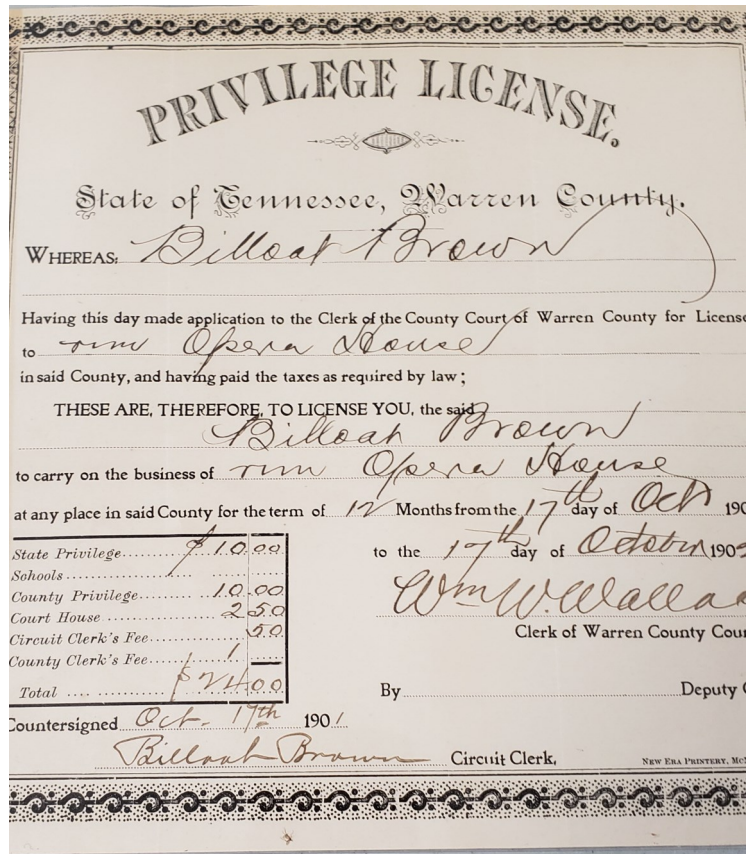 PRIVILEGE LICENSE.
State of Tennessee, Warren County.
WHEREAS: Billoat Brown
Having this day made application to the Clerk of the County Court of Warren County for License
to run Opera House
in said County, and having paid the taxes as required by law;
THESE ARE, THEREFORE, TO LICENSE YOU, the said
Billoah Brown
to carry on the business of run Opera House
at any place in said County for the term of 12 Months from the 17th day of Oct 190
to the 17th day of October 1902
State Privilege........ $10.00
Schools
County Privilege...... 10.00
Court House........... 2 50
Circuit Clerk's Fee....... 50
County Clerk's Fee..... 1
Total .... $24.00
Wm W. Wallac
Clerk of Warren County Cour
By Deputy C
Countersigned Oct. 17th 1901
Billoah Brown Circuit Clerk,
NEW ERA PRINTERY, McM